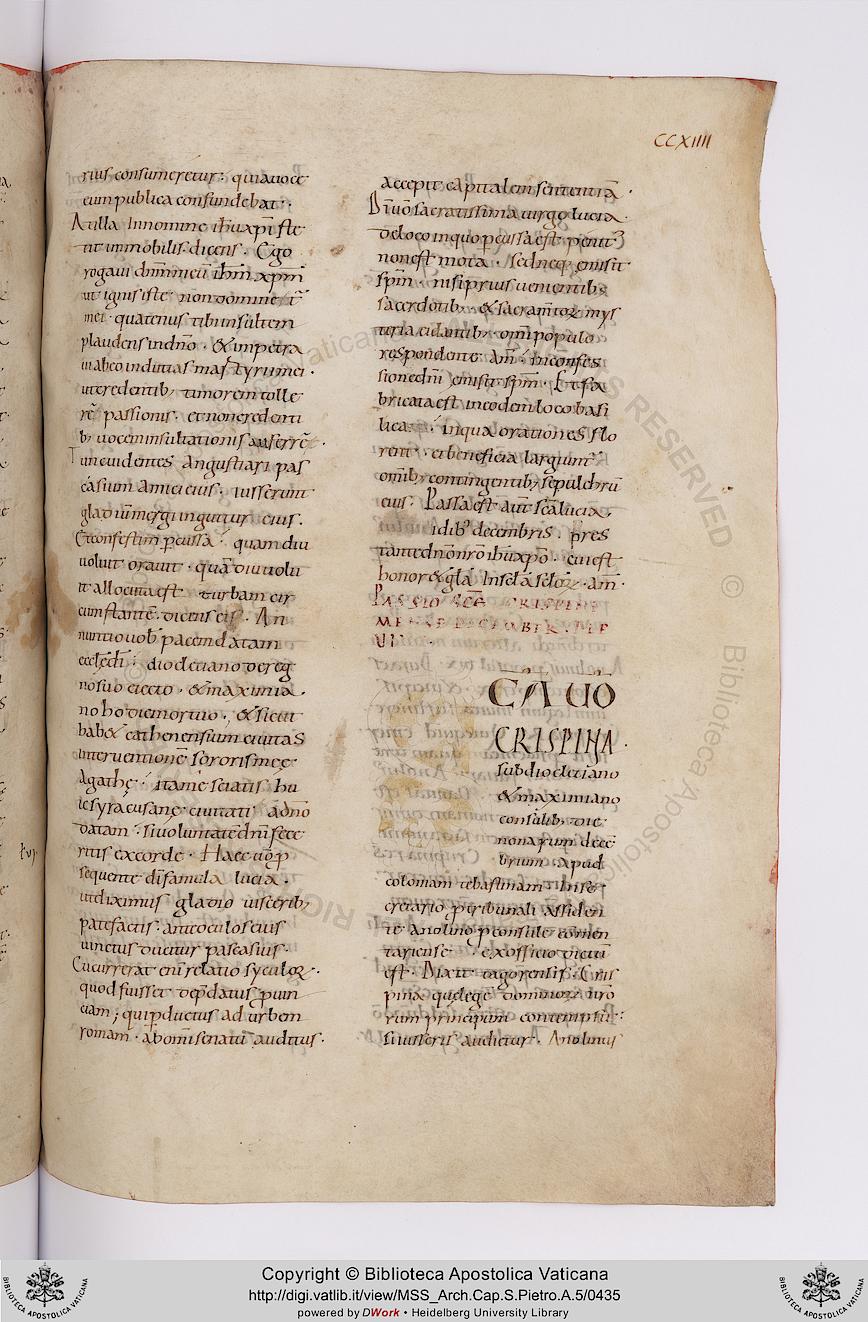 CCXIIII
rius consumeretur: quia uoce
eum publica confundebat.
At illa In nomine ihu xpi ste
tit immobilis dicens. Ego
rogaui dnm meū ihm xpm
ut ignis iste non dominet̄
mei. quatenus tibi insultem
plaudens in dn̄o. & impetra
ui ab eo indutias martyrii mei.
ut credentib; timorem tolle
rē passionis. et non credenti
b; uocem insultationis auferrē.
Tunc uidentes angustiari pas
casium amici eius. iusserunt
gladium mergi in guttur eius.
Et confestim pcussa. quam diu
uoluit orauit. quādiu uolu
it allocuta est turbam cir
cumstantē. dicens eis. An
nuntio uob pacem datam
eccle di. diocletiano de reg
no suo eiecto. & maximia
no hodie mortuo. & sicut
ciuitas
interuentionē sororis meę
Agathę. ita me sciatis hu
ic syracusanę ciuitati a dn̄o
datam. si uoluntatē dn̄i fece
ritis ex corde. Haec
sequente di famula lucia.
ut diximus gladio uiscerib;
patefactis. ante oculos eius
uinctus ducitur pascasius.
Cucurrerat eni relatio syculoꝝ.
quod fuisset depdatus puin
ciam; qui pductus ad urbem
romam. ab omi senatu auditus.
accepit capitalem sententiā.
sacratissima uirgo lucia.
de loco in quo pcussa est penit
non est mota. sed neq; emisit
spm. nisi prius uenientib;
sacerdotib; & sacramtoꝝ mys
teria dantib; omi populo
respondente am̄. in confes
sione dn̄i emisit spm. Et fa
bricata est in eodem loco basi
lica. in qua orationes flo
rent. et beneficia largiunt̄
omib; contingentib; sepulchrū
eius. Passa est aut sc̄a lucia.
idib; decembris. pres
tante dn̄o nr̄o ihu xpo. cui est
honor & gl̄a In scl̄a scl̄oꝝ. am̄.
PASSIO SCE CRISPINE
MENSE DECEMBER. DIE
CRISPINA.
sub diocletiano
& maximiano
consulib; die
nonarum decē
brium. apud
coloniam tebastinam. In se
cretario p tribunali assiden
te Anolino pconsule comen
tariense. ex officio dictū
est. Dixit tagorensis. Cris
pina quę legē dominoꝝ nro
rum principum contempsit:
si iusseris audietur. Anolinus
Ǝ VI
Copyright © Biblioteca Apostolica Vaticana
http://digi.vatlib.it/view/MSS_Arch.Cap.S.Pietro.A.5/0435
powered by DWork • Heidelberg University Library